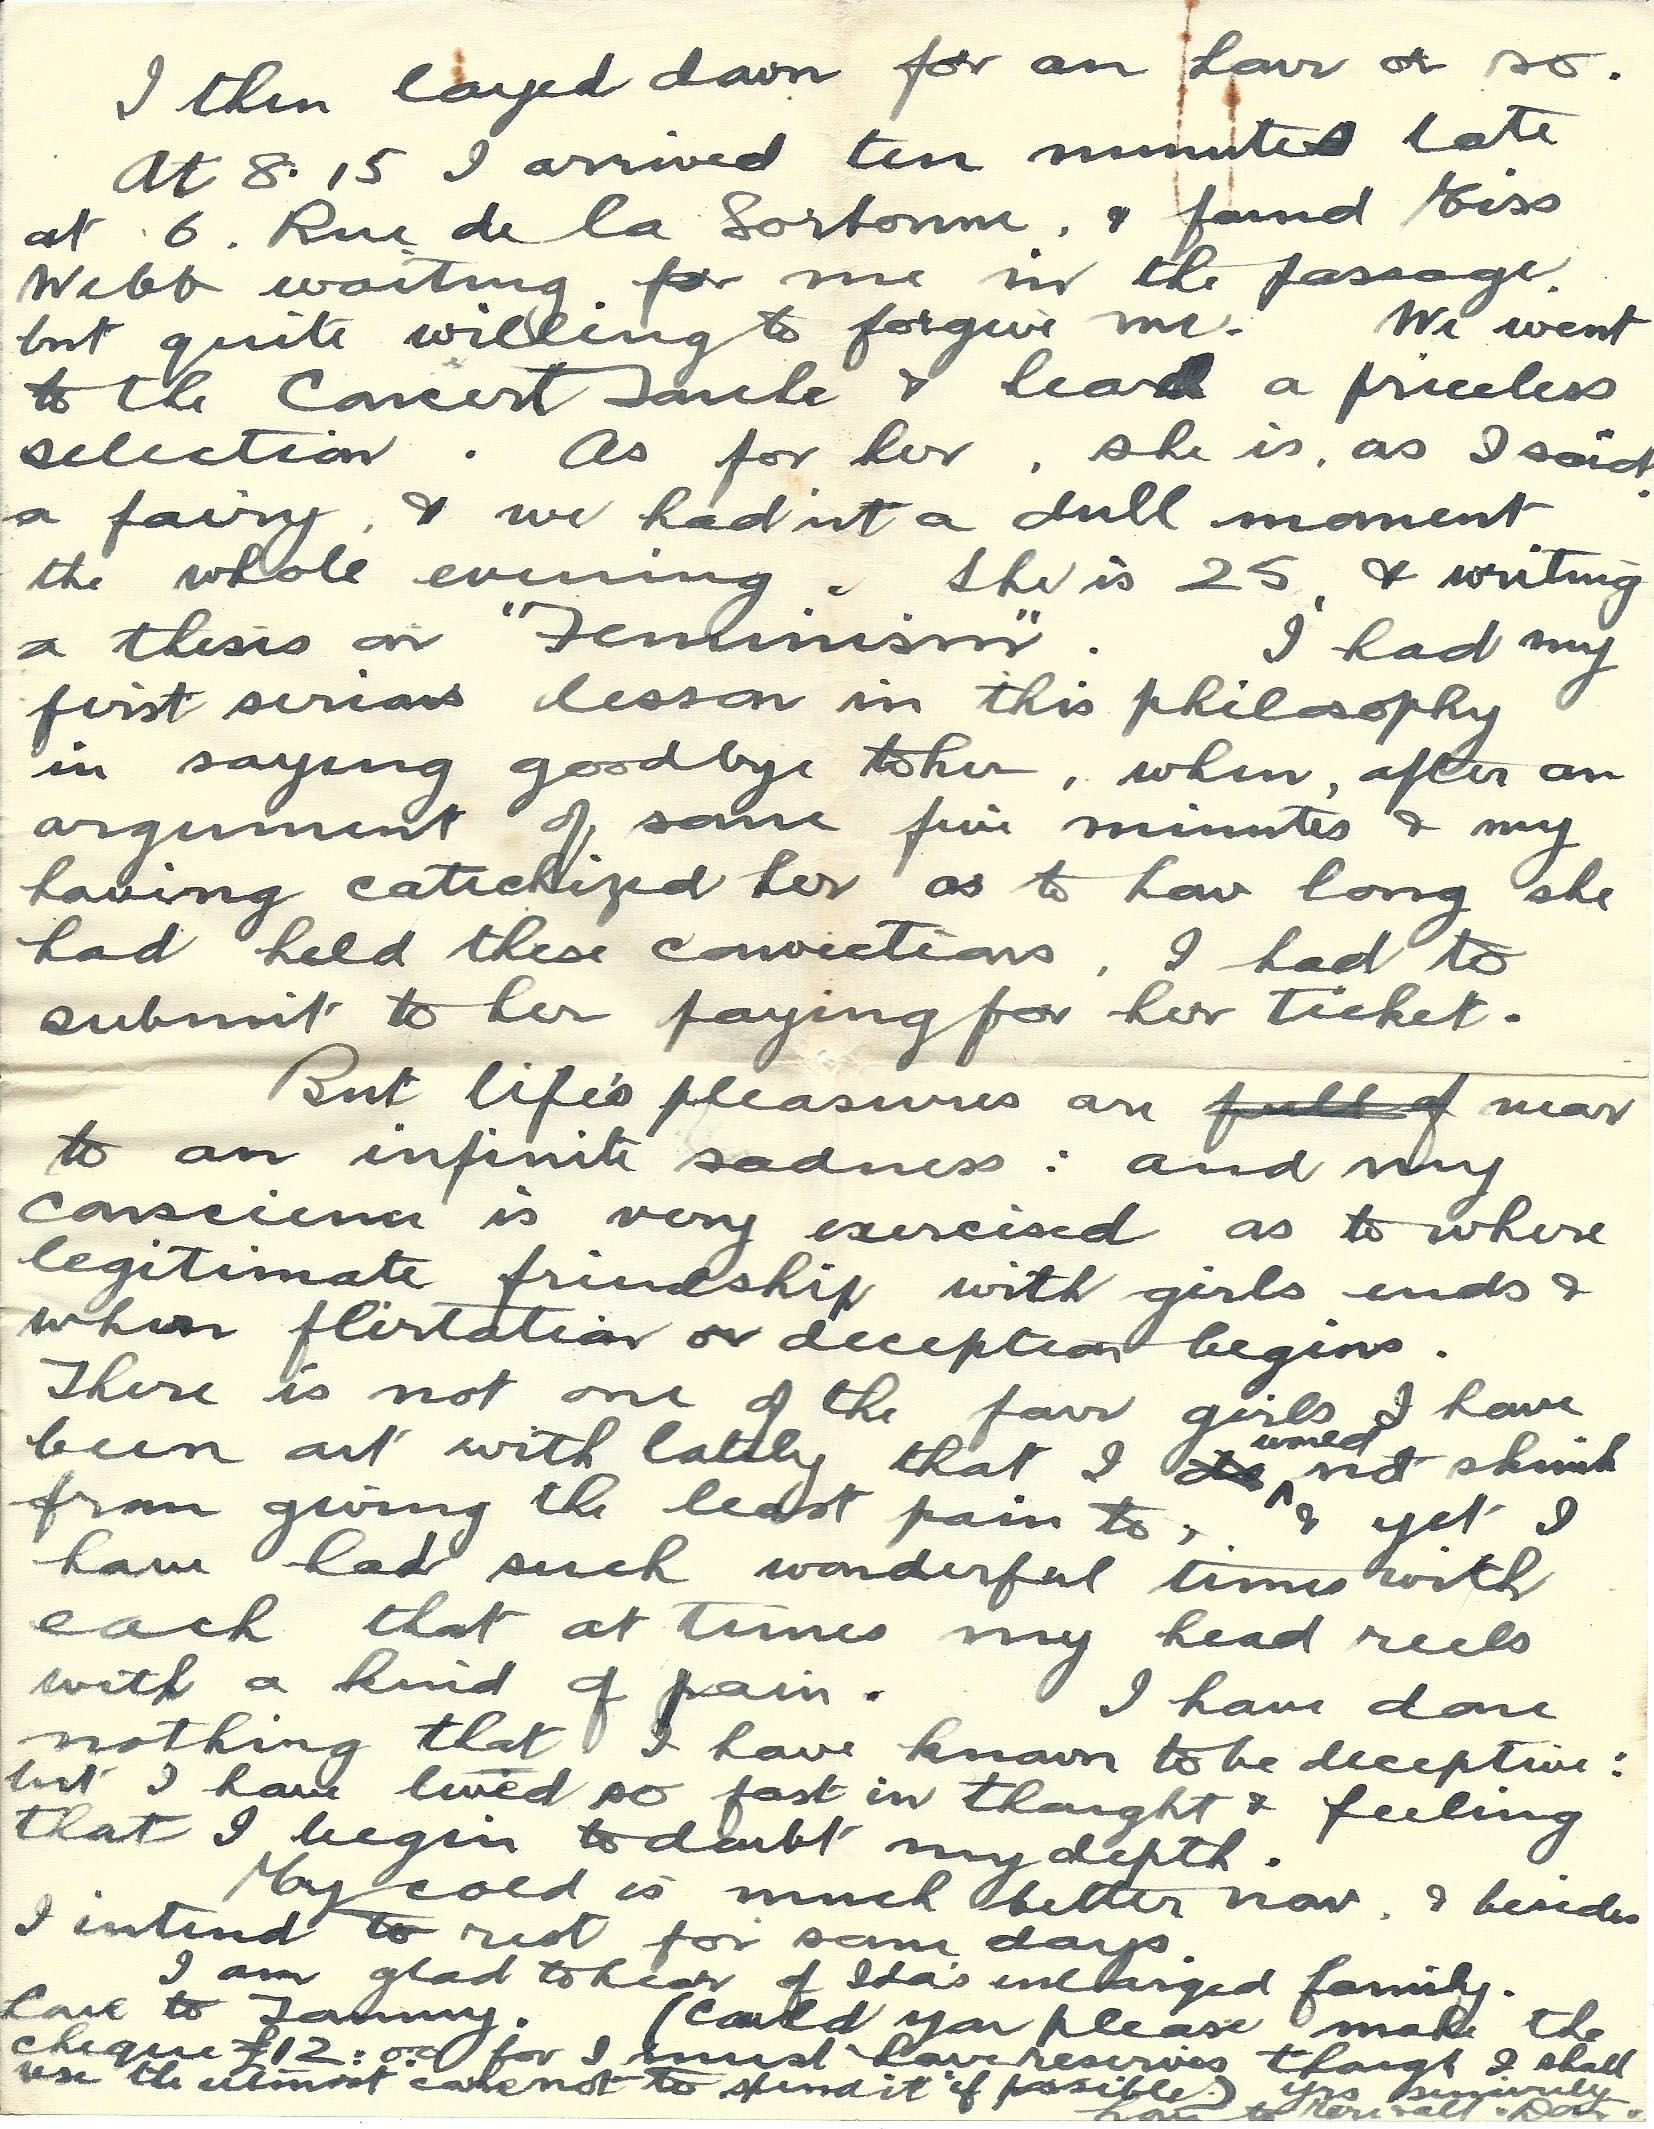 I then layed down for an hour or so.
At 8.15 I arrived ten minutes late
at 6. Rue de la Sorbonne, & found Miss
Webb waiting for me in the passage,
but quite willing to forgive me. We went
to the Concert Touche & heard a priceless
selection. As for her, she is, as I said,
a fairy, & we had'nt a dull moment
the whole evening. She is 25, & writing
a thesis on "Feminism". I had my
first serious lesson in this philosophy
in saying goodbye to her, when, after an
argument of some five minutes & my
having catechized her as to how long she
had held these convictions, I had to
submit to her paying for her ticket.
But life's pleasures are full of near
to an infinite sadness: and my
conscience is very exercised as to where
legitimate friendship with girls ends &
when flirtation or deception begins.
There is not one of the four girls I have
been out with lately that I do would not shrink
from giving the least pain to, & yet I
have had such wonderful times with
each that at times my head reels
with a kind of pain. I have done
nothing that I have known to be deceptive:
but I have lived so fast in thought & feeling
that I begin to doubt my depth.
My cold is much better now, & besides
I intend to rest for some days.
I am glad to hear of Ida's enlarged family.
Love to Tommy. (Could you please make the
cheque £12:0:0 for I must have reserves though I shall
use the utmost care not to spend it if possible.) yrs sincerely
Love to